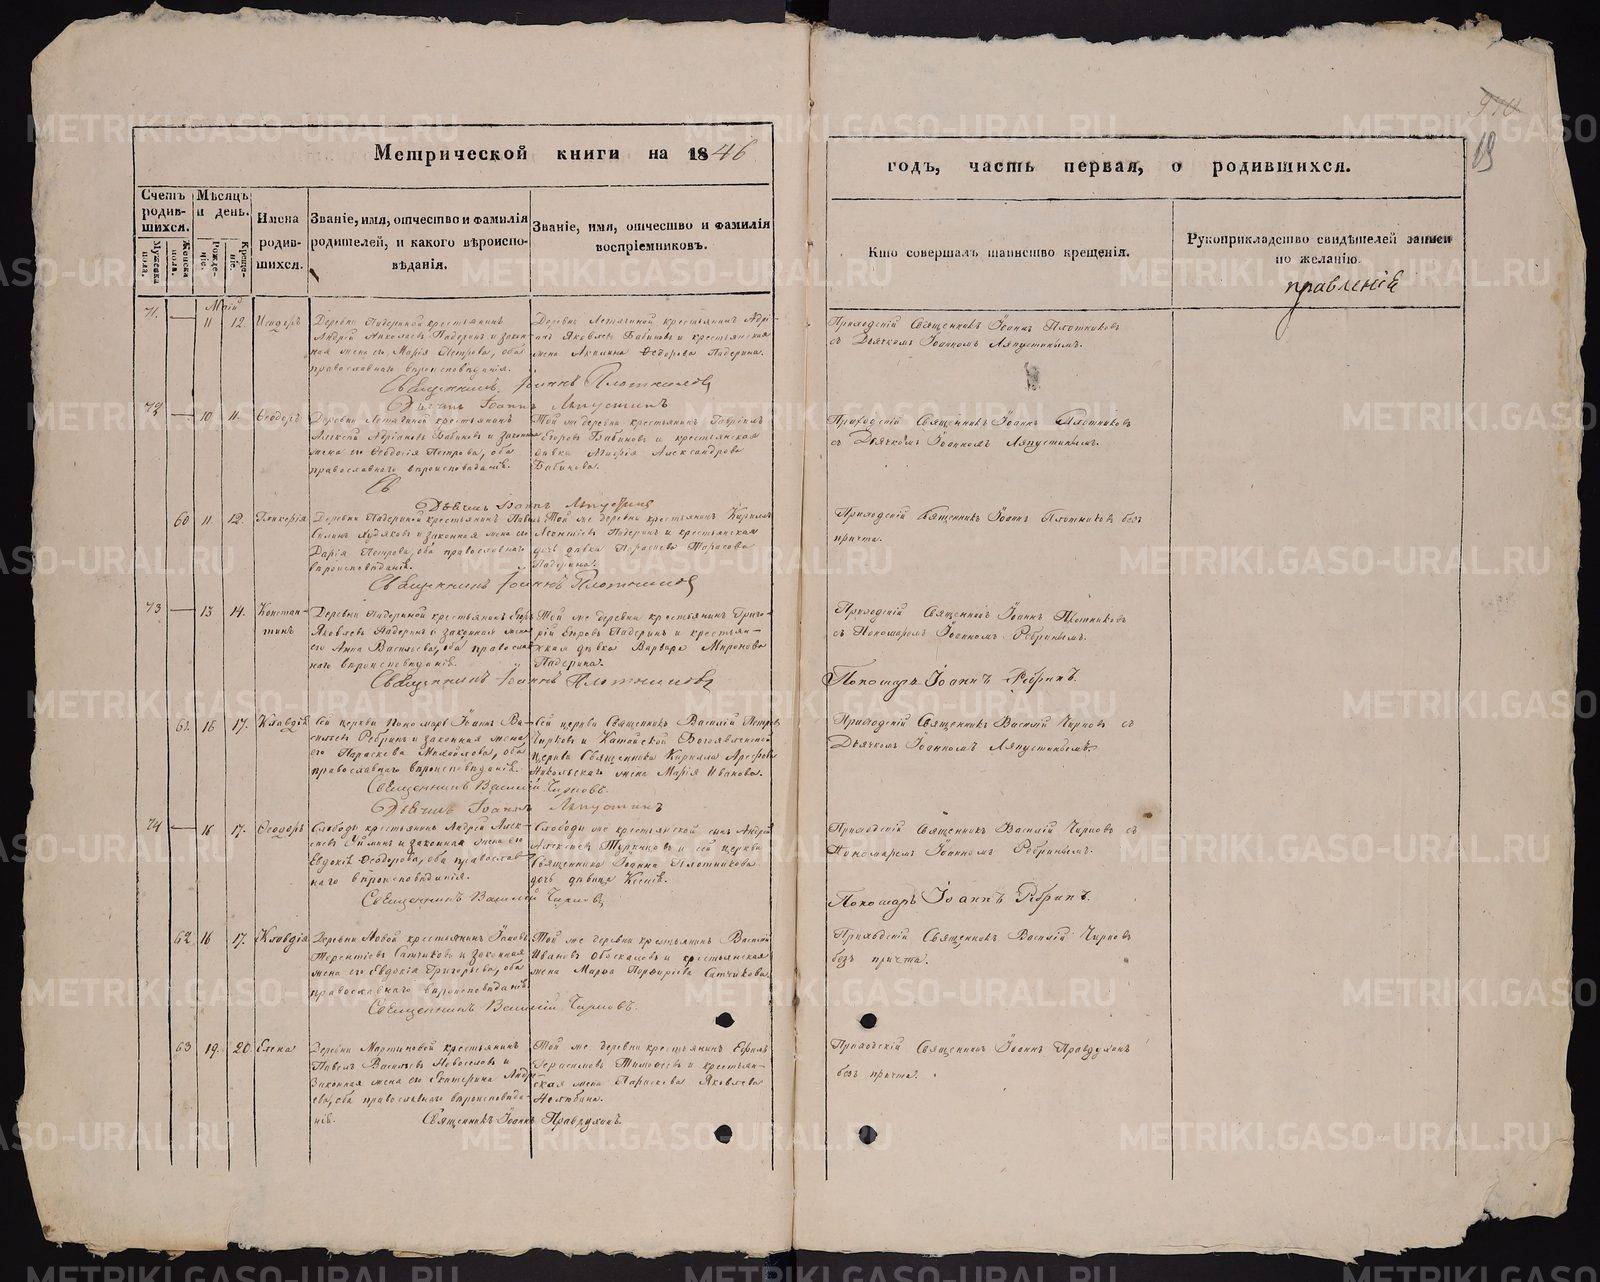 Метрической книги на 1846
годъ, часть первая, о родившихся.
910
19
Счетъ родившихся.
Мужеска пола.
Женска пола.
Мѣсяцъ и день.
Рожденіе.
Крещеніе.
Имена родившихся.
Званіе, имя, отчество и фамилія
родителей, и какого вѣроиспо-
вѣданія.
Званіе, имя, отчество и фамилія
воспріемниковъ.
Кто совершалъ таинство крещенія.
Рукоприкладство свидѣтелей записи
по желанію.
правленіе
Май
71. — 11 12.
Деревни Падериной крестьянинъ
Андрей Николаевъ Падеринъ и закон-
ная жена его Марія Петрова, оба
православнаго вѣроисповѣданія.
крестьянинъ Адрі-
анъ Яковлевъ Бабиновъ и крестьянская
жена Акилина Ѳедорова Падерина.
Приходскій Священникъ Іоаннъ Плотниковъ
съ Дьячкомъ Іоанномъ Ляпустинымъ.
Священникъ Іоаннъ Плотниковъ
Дьячекъ Іоаннъ Ляпустинъ
72 — 10 11. Ѳеодоръ
крестьянинъ
Алексѣй Адріановъ Бабиновъ и законная
жена его Ѳеодосія Петрова, оба
православнаго вѣроисповѣданія.
Той же деревни крестьянинъ Гавріилъ
Егоровъ Бабиновъ и крестьянская
дѣвка Марія Александрова
Бабинова.
Приходскій Священникъ Іоаннъ Плотниковъ
съ Дьячкомъ Іоанномъ Ляпустинымъ.
Св
Дьячекъ Іоаннъ Ляпустинъ
60 11 12. Гликерія
Деревни Падериной крестьянинъ Павелъ
законная жена его
Дарія Петрова, оба православнаго
вѣроисповѣданія.
Той же деревни крестьянинъ Кирилъ
Леонтіевъ Падеринъ и крестьянская
дочь дѣвка Параскева Тарасова
Падерина.
Приходскій Священникъ Іоаннъ Плотниковъ безъ
причта.
Священникъ Іоаннъ Плотниковъ
73 — 13 14. Констан-
тинъ
Деревни Падериной крестьянинъ
Яковлевъ Падеринъ и законная жена
его Анна Васильева, оба православ-
наго вѣроисповѣданія.
Той же деревни крестьянинъ Григо-
рій Егоровъ Падеринъ и крестьян-
ская дѣвка Варвара Миронова
Падерина.
Приходскій Священникъ Іоаннъ Плотниковъ
съ Пономаремъ Іоанномъ Ребринымъ.
Священникъ Іоаннъ Плотниковъ
Пономарь Іоаннъ Ребринъ.
61. 16 17. Клавдія
Сей церкви Пономарь Іоаннъ Ва-
сильевъ Ребринъ и законная жена
его Параскева Михайлова, оба
православнаго вѣроисповѣданія.
Сей церкви Священникъ Василій Петровъ
Чирковъ и Катайской Богоявленской
церкви Священника Кирилла Арефова
Никольскаго жена Марія Иванова.
Приходскій Священникъ Василій Чирковъ съ
Дьячкомъ Іоанномъ Ляпустинымъ.
Священникъ Василій Чирковъ.
Дьячекъ Іоаннъ Ляпустинъ
74 — 16 17. Ѳеодоръ
Слободы крестьянинъ Андрей Алек-
сѣевъ и законная жена его
Евдокія Ѳеодорова, оба православ-
наго вѣроисповѣданія.
Слободы же крестьянской сынъ Андрей
Алексѣевъ и сей церкви
Священника Іоанна Плотникова
дочь дѣвица Ксенія.
Приходскій Священникъ Василій Чирковъ съ
Пономаремъ Іоанномъ Ребринымъ.
Священникъ Василій Чирковъ
Пономарь Іоаннъ Ребринъ.
62. 16 17. Клавдія
Деревни Новой крестьянинъ Іаковъ
Терентіевъ Сатчиковъ и законная
жена его Евдокія Григорьева, оба
православнаго вѣроисповѣданія.
Той же деревни крестьянинъ Василій
Ивановъ и крестьянская
жена Марѳа Порфиріева Сатчикова.
Приходскій Священникъ Василій Чирковъ
безъ причта.
Священникъ Василій Чирковъ.
63 19. 20. Елена
Деревни Мартиновой крестьянинъ
Павелъ Васильевъ Новоселовъ и
законная жена его Екатерина Андре-
ева, оба православнаго вѣроисповѣда-
нія.
Той же деревни крестьянинъ Ефимъ
Герасимовъ Тимоѳеевъ и крестьян-
ская жена Параскева Яковлева
Приходскій Священникъ Іоаннъ Правдухинъ
безъ причта.
Священникъ Іоаннъ Правдухинъ.
METRIKI.GASO-URAL.RU